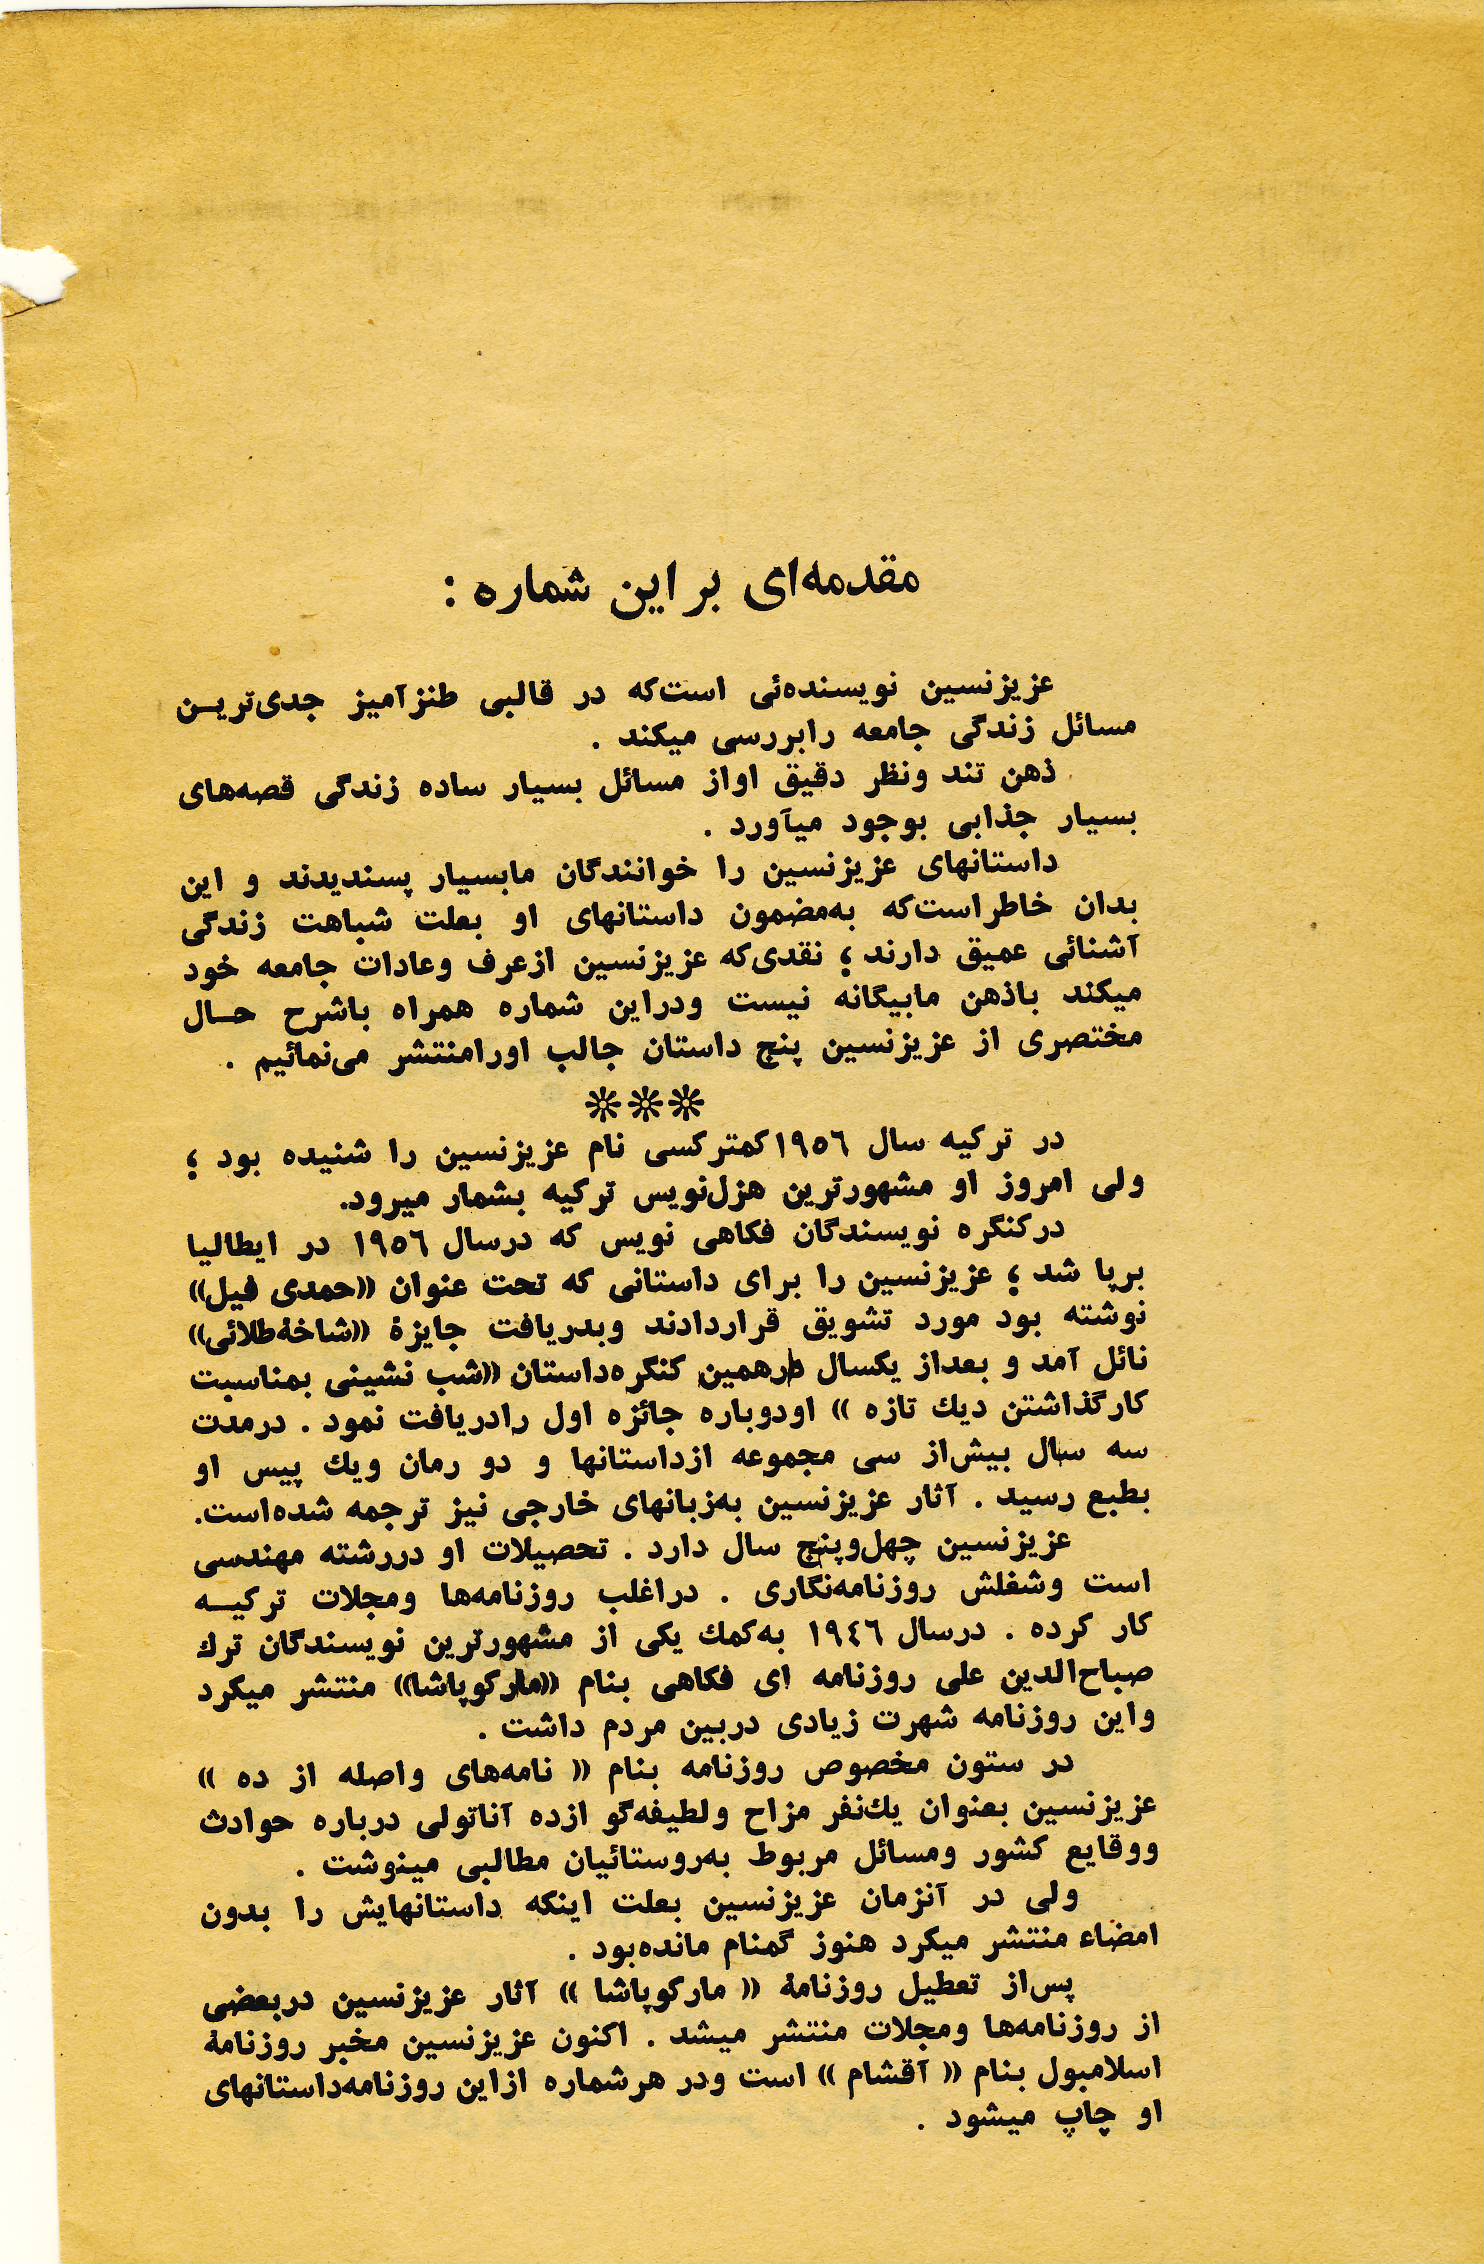 مقدمه‌ای بر این شماره :
عزیزنسین نویسنده‌ئی است‌که در قالبی طنزآمیز جدی‌تریـن
مسائل زندگی جامعه رابررسی میکند .
ذهن تند ونظر دقیق اواز مسائل بسیار ساده زندگی قصه‌های
بسیار جذابی بوجود میآورد .
داستانهای عزیزنسین را خوانندگان مابسیار پسندیدند و این
بدان خاطراست‌که به‌مضمون داستانهای او بعلت شباهت زندگی
آشنائی عمیق دارند ؛ نقدی‌که عزیزنسین ازعرف وعادات جامعه خود
میکند باذهن مابیگانه نیست ودراین شماره همراه باشرح حـال
مختصری از عزیزنسین پنج داستان جالب اورامنتشر می‌نمائیم .
***
در ترکیه سال ١٩٥٦ کمترکسی نام عزیزنسین را شنیده بود ؛
ولی امروز او مشهورترین هزل‌نویس ترکیه بشمار میرود.
درکنگره نویسندگان فکاهی نویس که درسال ١٩٥٦ در ایطالیا
برپا شد ؛ عزیزنسین را برای داستانی که تحت عنوان «حمدی فیل»
نوشته بود مورد تشویق قراردادند وبدریافت جایزهٔ «شاخهٔ‌طلائی»
نائل آمد و بعداز یکسال درهمین کنگره‌داستان «شب نشینی بمناسبت
کارگذاشتن دیك تازه » اودوباره جائزه اول رادریافت نمود . درمدت
سه سال بیش‌از سی مجموعه ازداستانها و دو رمان ویك پیس او
بطبع رسید . آثار عزیزنسین به‌زبانهای خارجی نیز ترجمه شده‌است.
عزیزنسین چهل‌وپنج سال دارد . تحصیلات او دررشته مهندسی
است وشغلش روزنامه‌نگاری . دراغلب روزنامه‌ها ومجلات ترکیـه
کار کرده . درسال ١٩٤٦ به‌کمك یکی از مشهورترین نویسندگان ترك
صباح‌الدین علی روزنامه ای فکاهی بنام «مارکوپاشا» منتشر میکرد
واین روزنامه شهرت زیادی دربین مردم داشت .
در ستون مخصوص روزنامه بنام « نامه‌های واصله از ده »
عزیزنسین بعنوان یك‌نفر مزاح ولطیفه‌گو ازده آناتولی درباره حوادث
ووقایع کشور ومسائل مربوط به‌روستائیان مطالبی مینوشت .
ولی در آنزمان عزیزنسین بعلت اینکه داستانهایش را بدون
امضاء منتشر میکرد هنوز گمنام مانده‌بود .
پس‌از تعطیل روزنامهٔ « مارکوپاشا » آثار عزیزنسین دربعضی
از روزنامه‌ها ومجلات منتشر میشد . اکنون عزیزنسین مخبر روزنامهٔ
اسلامبول بنام « آقشام » است ودر هرشماره ازاین روزنامه‌داستانهای
او چاپ میشود .